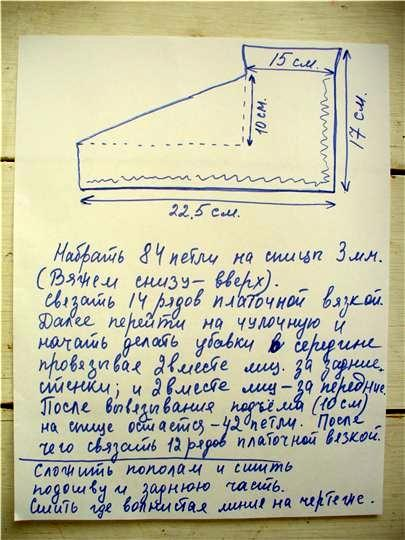 15 см.
10 см.
17 см.
22,5 см.
Набрать 84 петли на спицы 3 мм.
(Вяжем снизу - вверх).
связать 14 рядов платочной вязкой.
Далее перейти на чулочную и
начать делать убавки в середине
провязывая 2 вместе лиц. за задние
стенки; и 2 вместе лиц - за передние.
После вывязывания подъёма (10 см)
на спице остаётся - 42 петли. После
чего связать 12 рядов платочной вязкой.
Сложить пополам и сшить
подошву и заднюю часть.
Сшить где волнистая линия на чертеже.